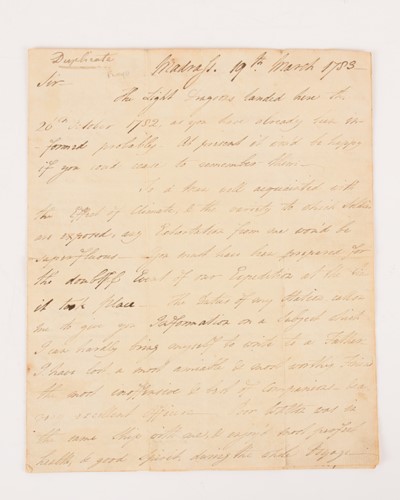 Duplicate
Madrass. 19th March 1783
Sir
The Light Dragoons landed here the
26th October 1782 as you have already been in-
-formed probably. At present it wou'd be happy
if you cou'd cease to remember
To a true well acquainted with
the Effect of Climate, & the variety to which Soldiers
are exposed, any Exhortation from me wou'd be
Superfluous. You must have been prepared for
the doubtfull Event of our Expedition at the
it took place. The duties of my Station
me to give you Information on a Subject which
I can hardly bring myself to write to a Father
I have lost a most amiable & most worthy Friend
the most inoffensive & best of Companions,
very excellent officer. was in
the same Ship with me, & enjoy'd most perfect
health, & good Spirits during the whole Voyage